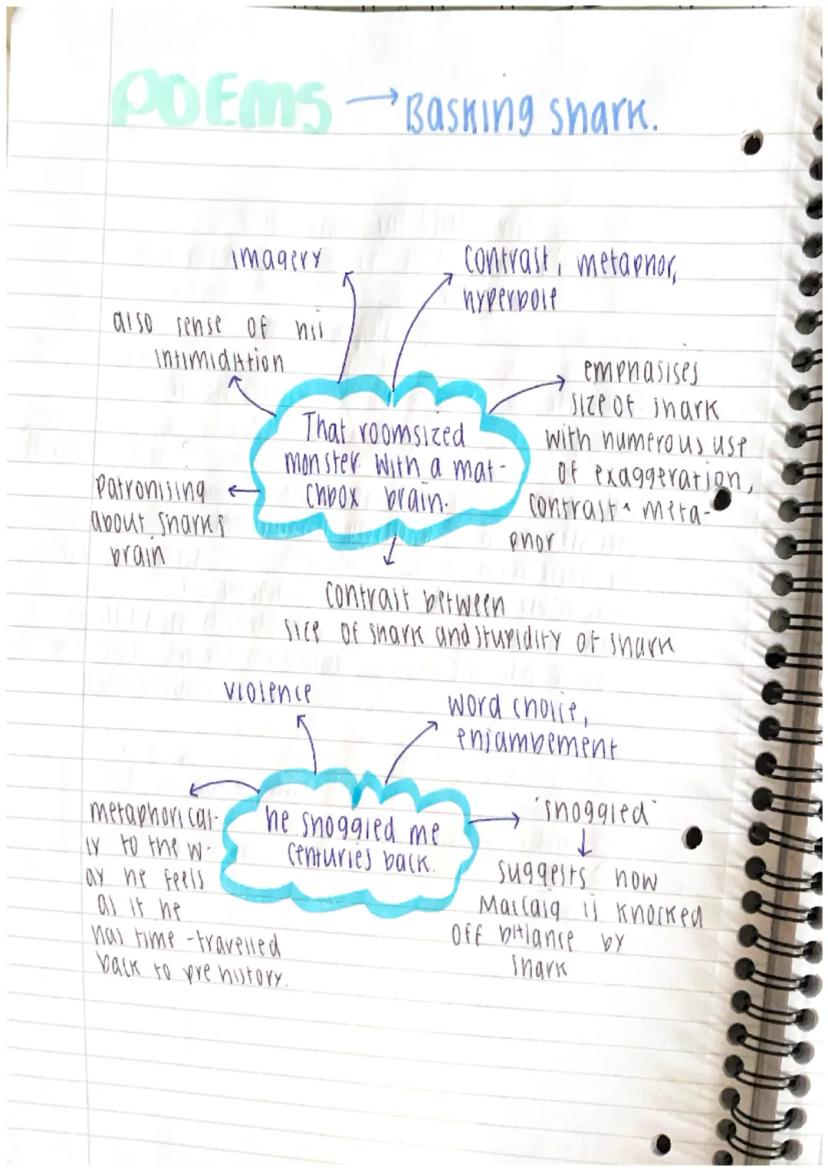 POEMS → Basking shark.
imagery
contrast, metaphor,
hyperbole
also sense of his
intimidation
emphasises
size of shark
with numerous use
of exaggeration,
contrast + meta-
phor
That roomsized
monster with a mat-
chbox brain.
patronising
about sharks
brain
contrast between
size of shark and stupidity of shark
violence
word choice,
enjambement
he shoggled me
centuries back.
metaphorical-
ly to the w-
ay he feels
as if he
has time-travelled
back to prehistory.
'shoggled'
suggests how
Maccaig is knocked
off balance by
shark